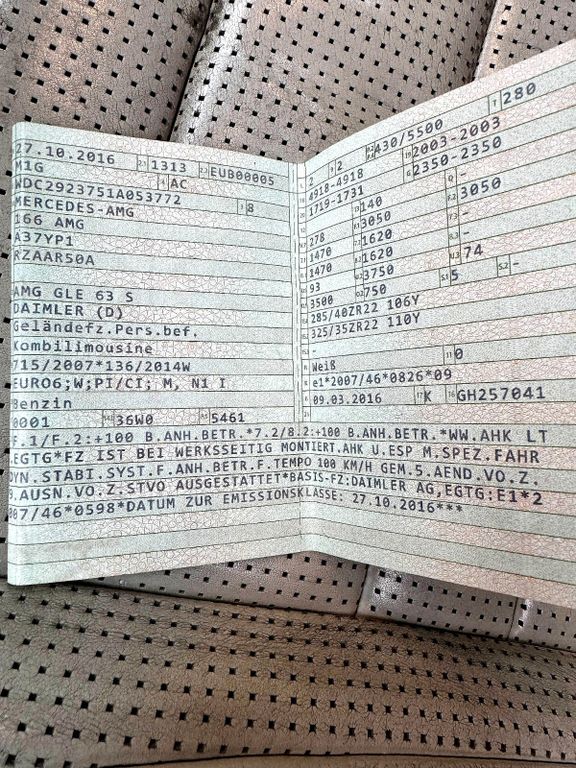 27.10.2016 2.1 1313 2.2 EUB00005
M1G 4 AC
WDC2923751A053772 3 8
MERCEDES-AMG
166 AMG
A37YP1
RZAAR50A
AMG GLE 63 S
DAIMLER (D)
Geländefz.Pers.bef.
Kombilimousine
715/2007*136/2014W
EURO6;W;PI/CI; M, N1 I
Benzin
0001 36W0 5461
2 2 430/5500 T 280
4918-4918 2003-2003
1719-1731 G 2350-2350
140 Q -
278 3050 3050
1470 1620 -
1470 1620 -
93 3750 U.3 74
3500 750 S.1 5 S.2 -
285/40ZR22 106Y
325/35ZR22 110Y
-
Weiß 11 0
e1*2007/46*0826*09
09.03.2016 17 K 16 GH257041
F.1/F.2:+100 B.ANH.BETR.*7.2/8.2:+100 B.ANH.BETR.*WW.AHK LT
EGTG*FZ IST BEI WERKSSEITIG MONTIERT.AHK U.ESP M.SPEZ.FAHR
DYN.STABI.SYST.F.ANH.BETR.F.TEMPO 100 KM/H GEM.5.AEND.VO.Z.
B.AUSN.VO.Z.STVO AUSGESTATTET*BASIS-FZ:DAIMLER AG,EGTG:E1*2
007/46*0598*DATUM ZUR EMISSIONSKLASSE: 27.10.2016***